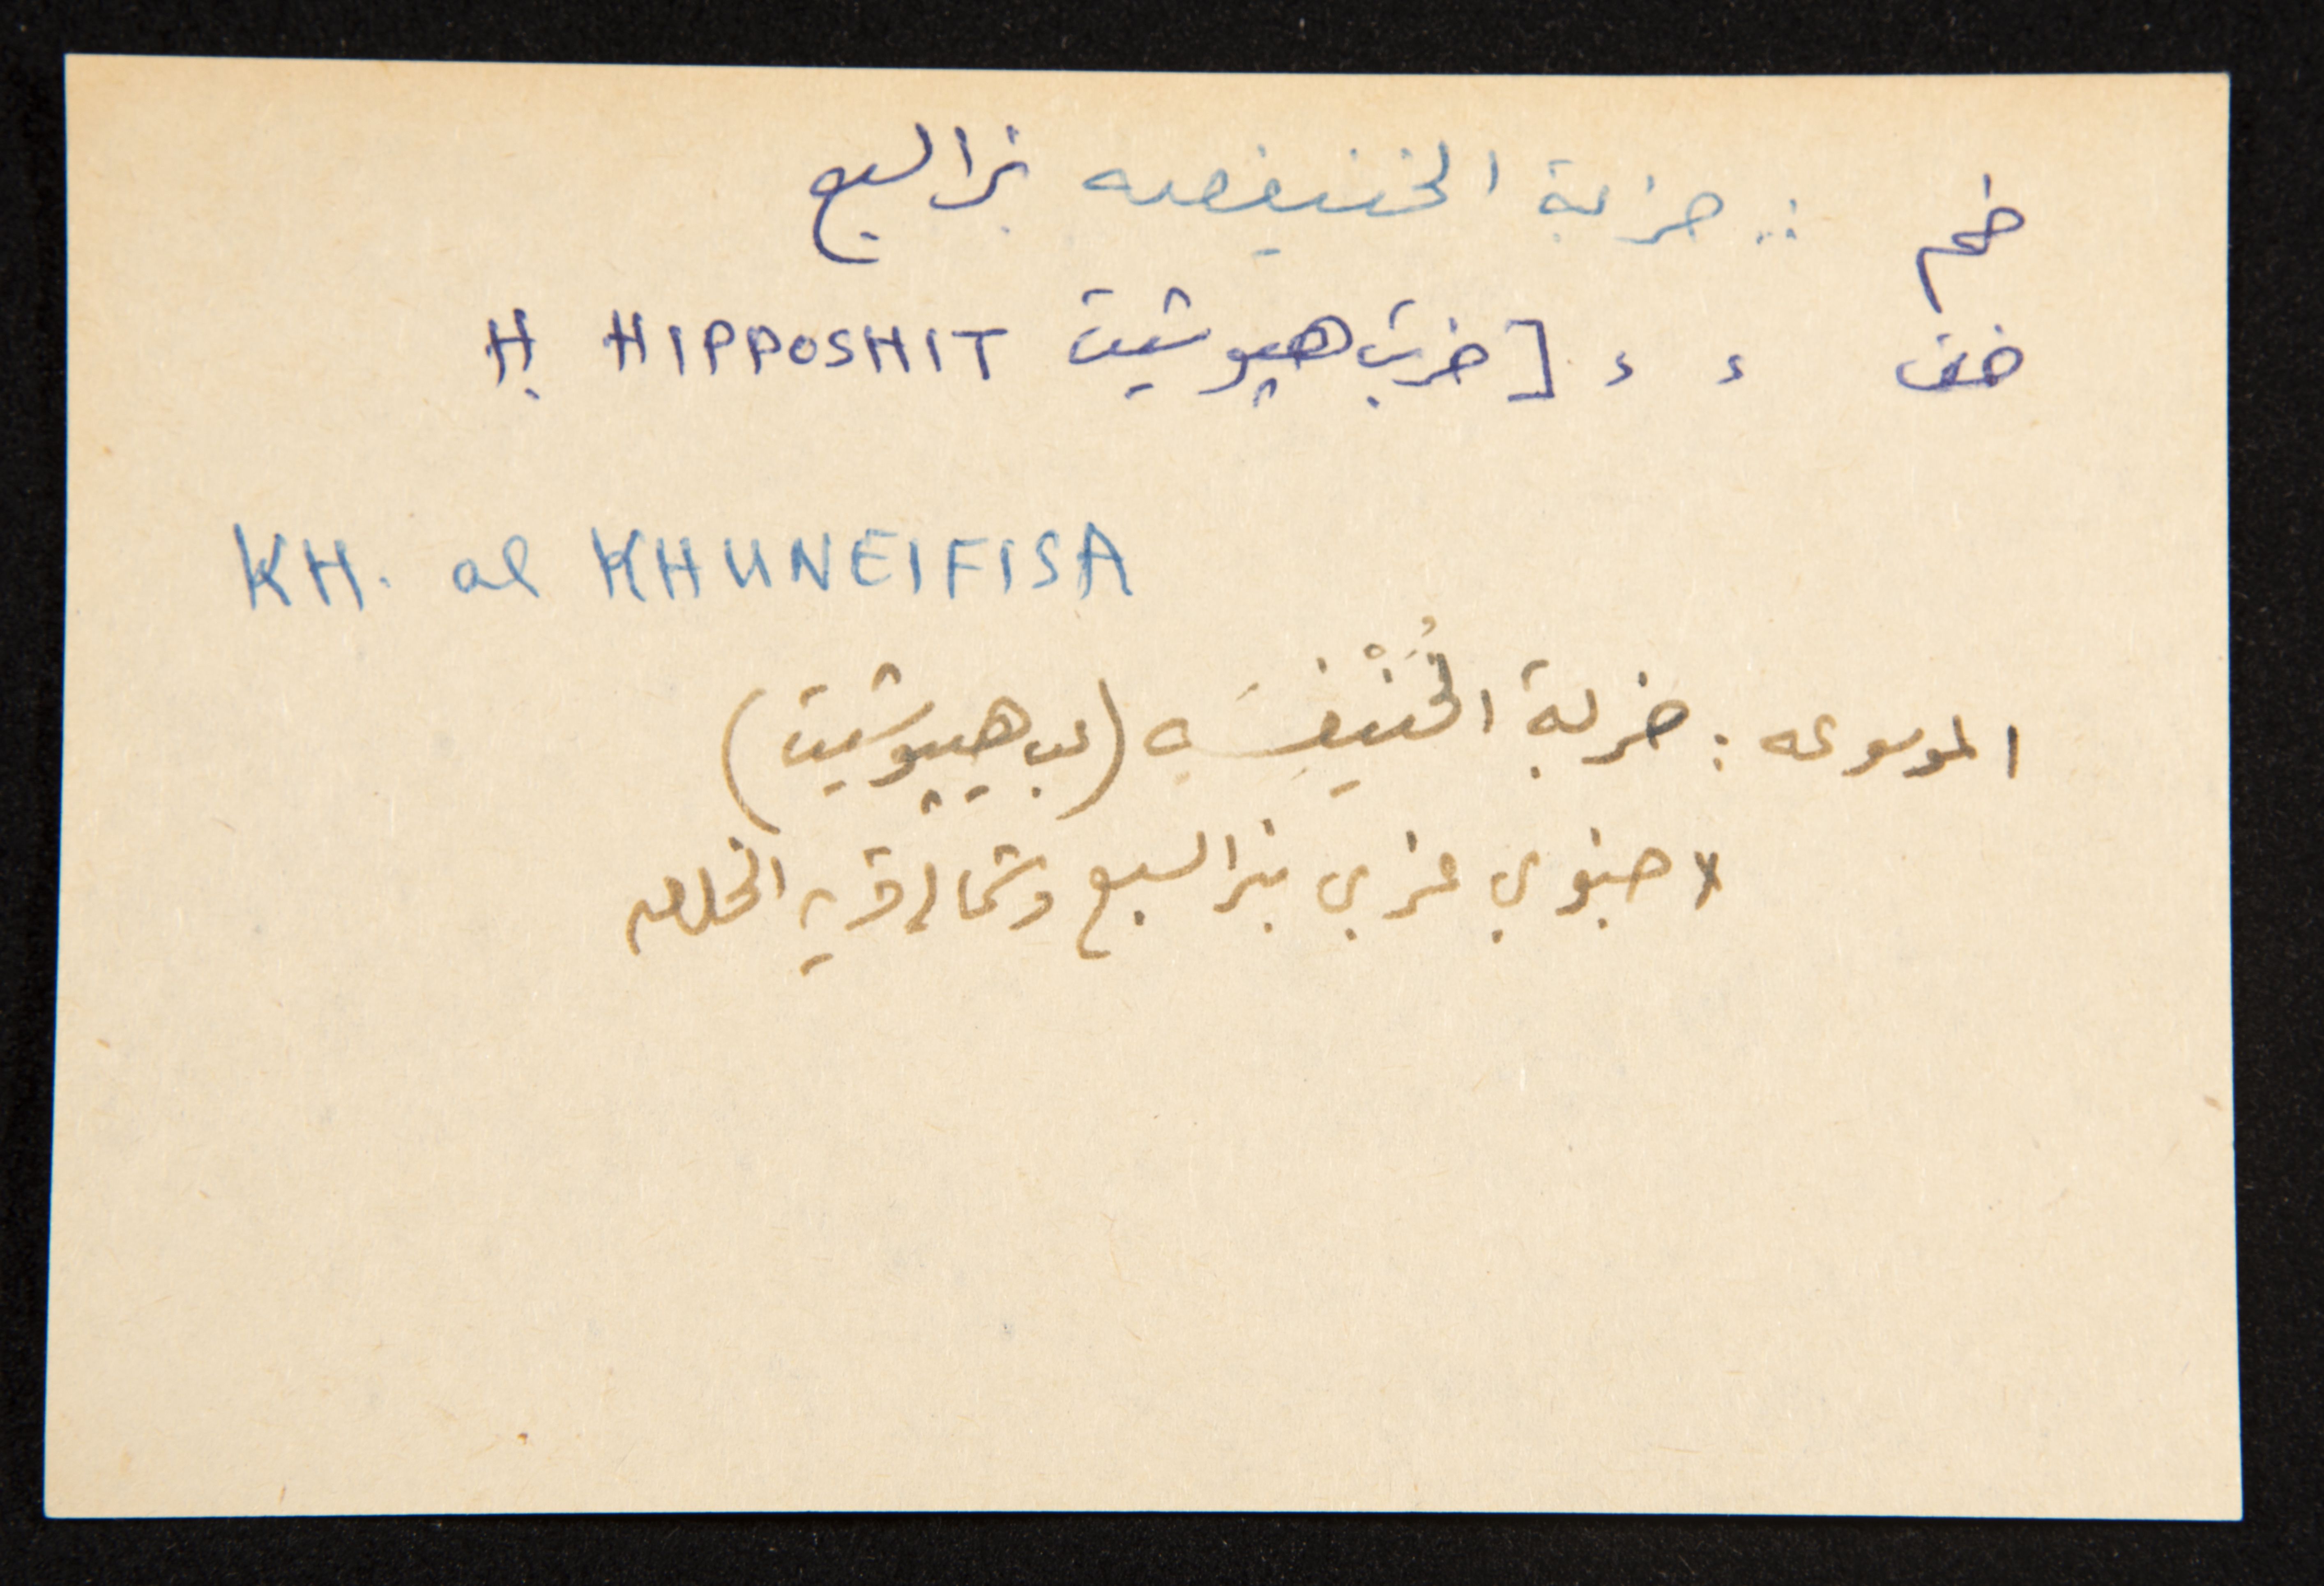 خم : خربة الخنيفصه بئر السبع
خف ، ، [خربت هيپوشيت H HIPPOSHIT
KH. al KHUNEIFISA
الموسوعه : خربة الخُنْيفِسَه (عب هيپوشيت)
جنوبي غربي بئر السبع وشمالي قرية الخلصه